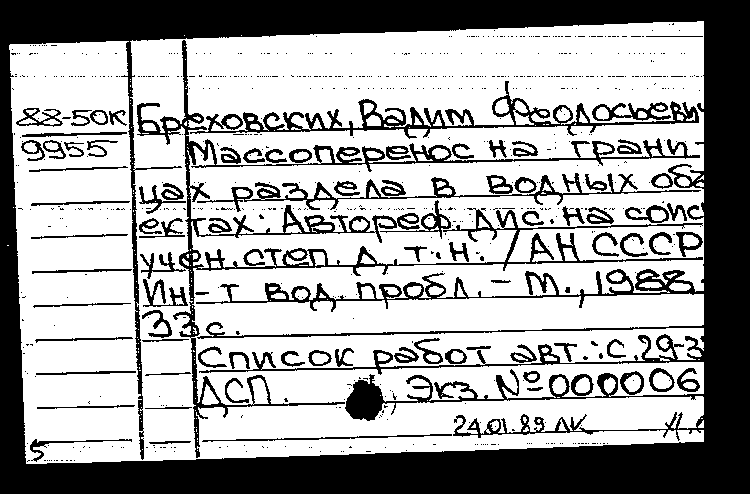 88-50к Бреховских, Вадим Феодосьеви
9955 Массоперенос на грани-
цах раздела в водных объ
ектах: Автореф. дис. на соис
учен. степ. д. т. н. / АН СССР
Ин-т вод. пробл. - М., 1988.
33 с.
Список работ авт.: с. 29-3
ДСП. Экз. № 000006
24.01.89 ЛК
5